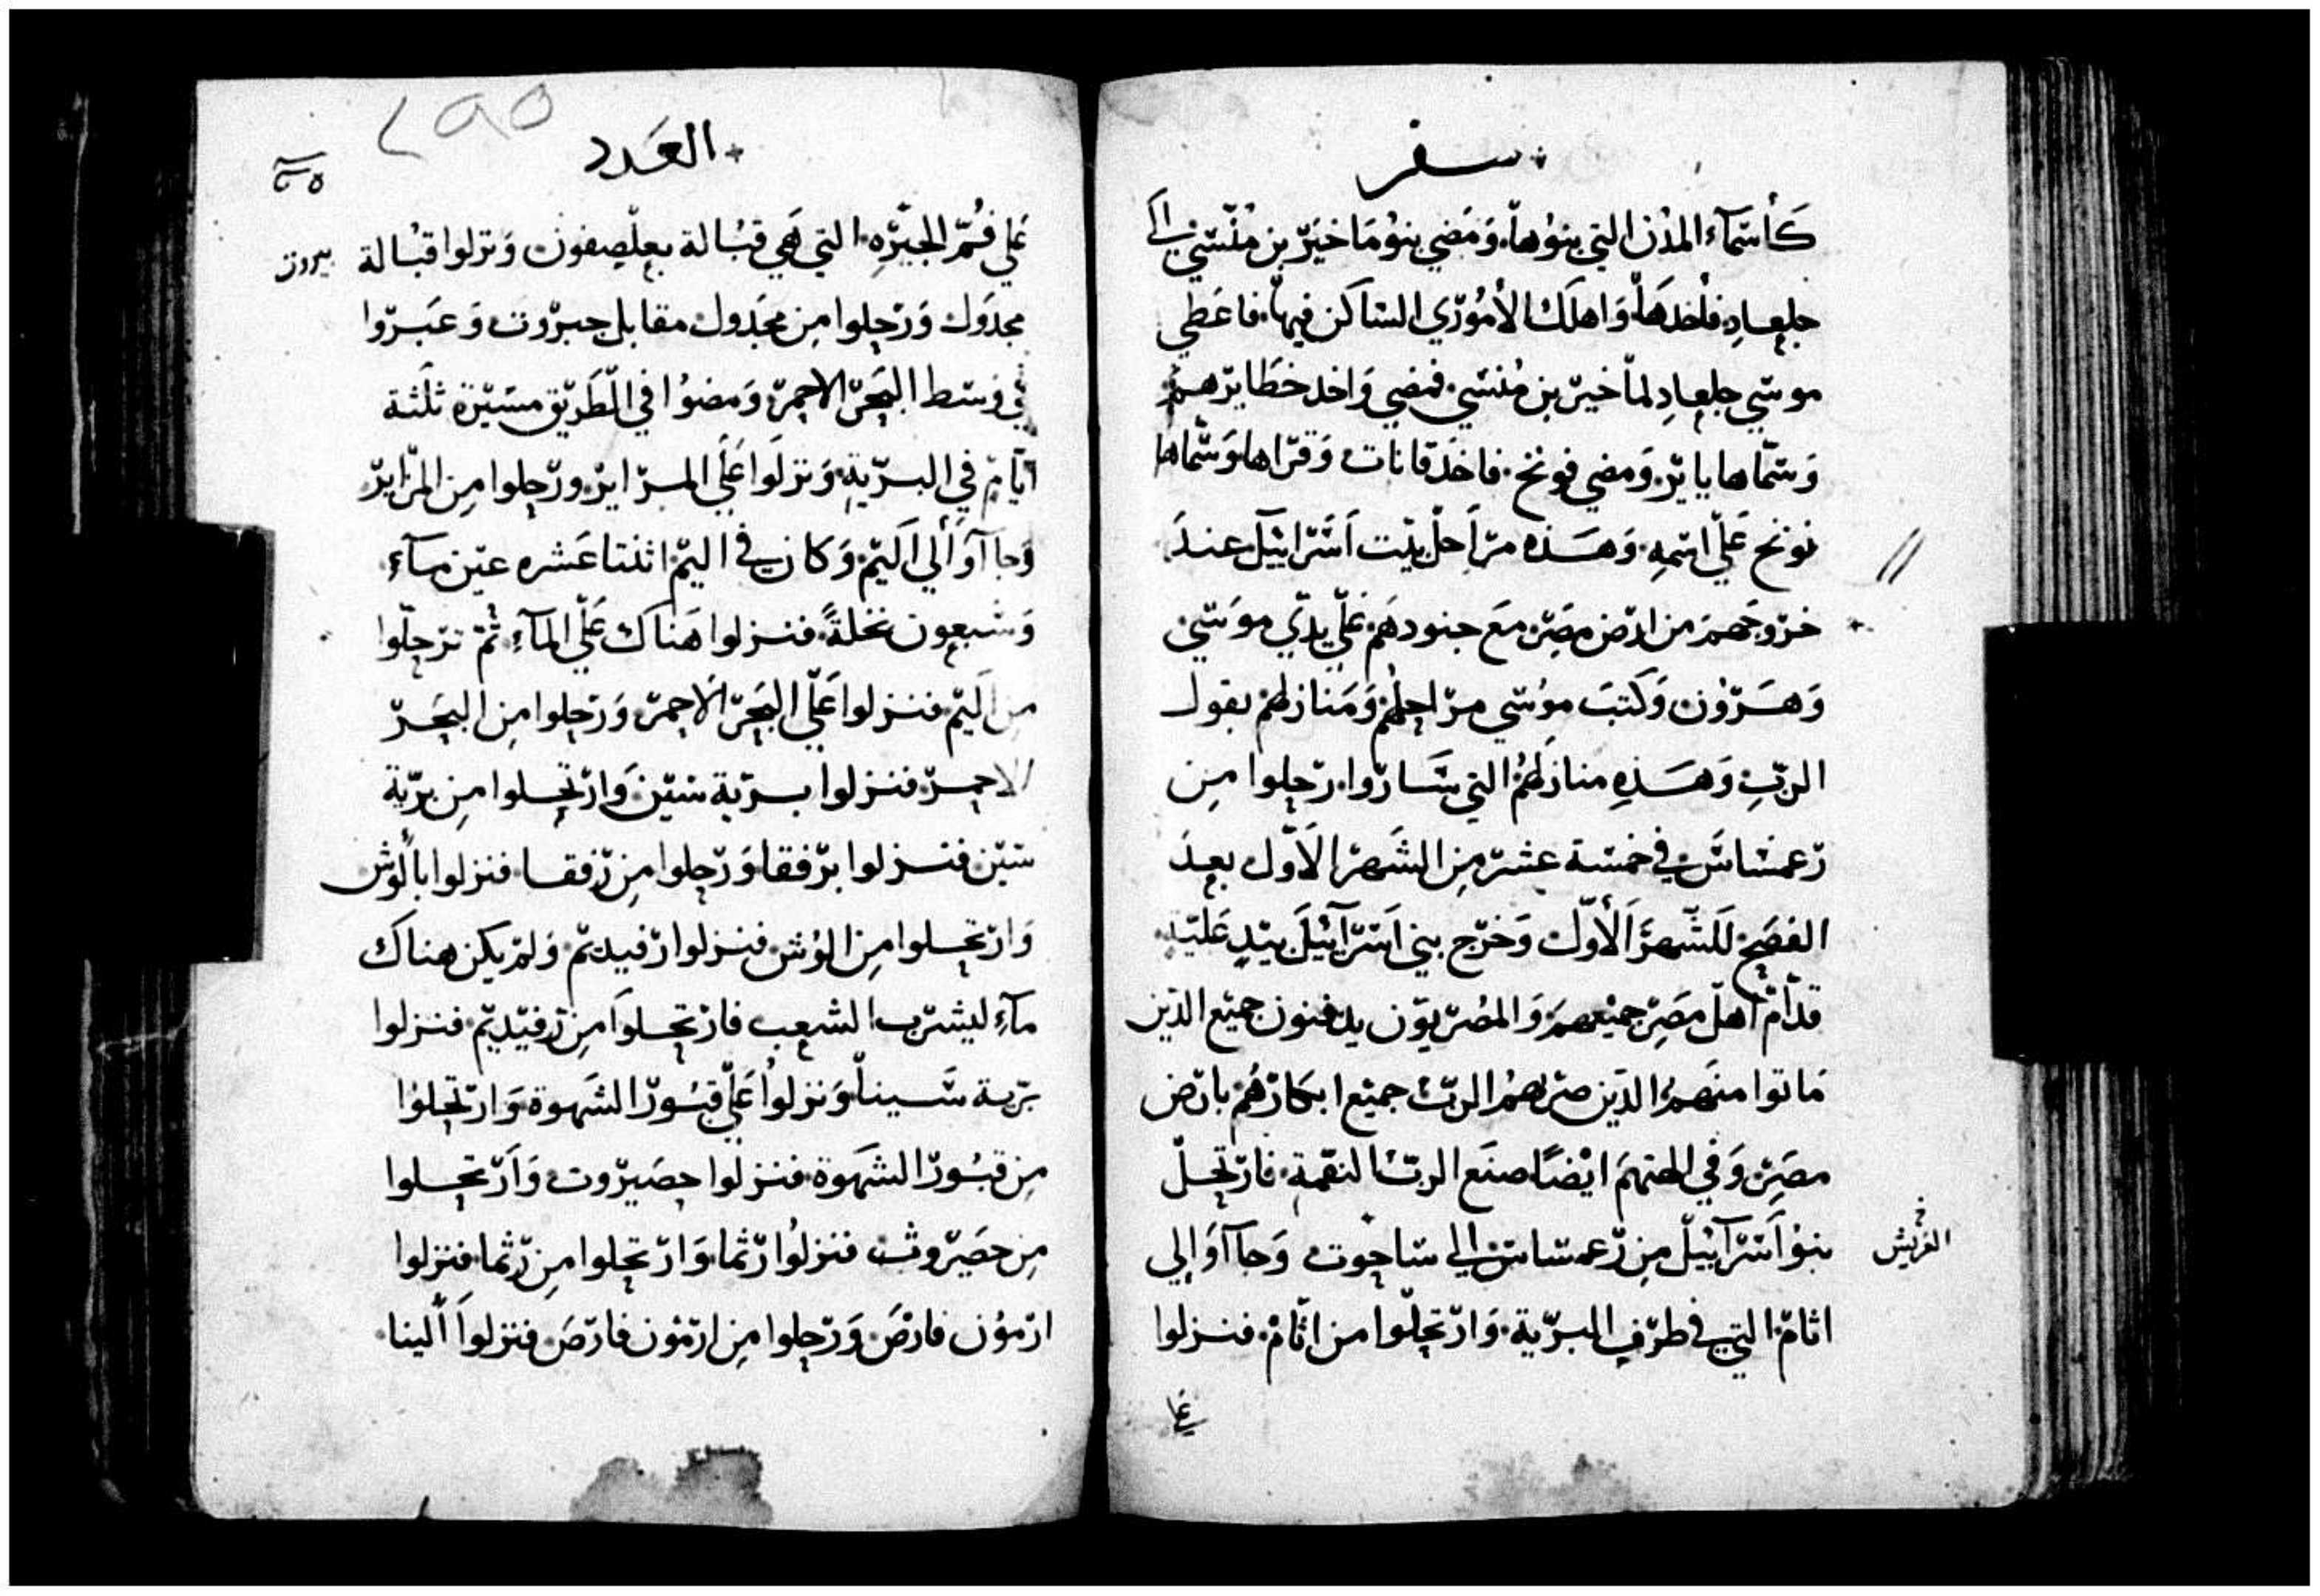 سفر
كَأسمآء المدُن التي بنوُها. وَمَضي بنوُ مَاخيَر بن مُنسّي الَي
جلعاد فأخدهَا وَاهلَك الأمُوري الساكن فيها. فاعَطي
موسي جلعادِ لماخير بن مُنسي. فمضي وَاخد خطَايرهم
وَسمّاها يايَر. وَمضي نونح. فاخدَ قانات وَقراها وَسَماها
نونح عَلي اسمِهِ. وَهَذه مرَاحل بيت اَسَرايَيل عندَ
خروجَهمَ من ارض مصَر مَع جنودهَم عَلي يدي موَسي
وَهَرون وَكتبَ موُسي مراحلهُم وَمَنازلهُم بقول
الربِ وَهَذِه منازلهُم التي سَاروا. رحلوا مِن
رعمساسَ في خمسة عشر مِن الشَهر الاَول بعدَ
الفصَح للَشهرَ الأوَل وَخرج بني اَسَرآيَيلَ بيَدٍ عَليَة
قدَام اهل مصَر جميعهمَ وَالمصُريوَن يدفنون جميَع الدين
مَاتوا منَهمُ الدين ضرَبهمُ الربُ جميَع ابكَارَهُم بارض
مصَر. وَفي الهتهمَ ايضًا صنَع الربُ النقمة. فارتحل
بنوُ اَسَرآييل مِن رعمساس الي ساحوت وَجآاوَا الِي
الفريش
اثامَ التي في طرف البرية. وَارتحلوا من اثام. فنزلوا
علي
العَدد
عَلي فُمّ الجيَرهِ التي هَي قبُالة بعلصفون وَنزلوا قبُالة
بيروت
مجدَول وَرحلوا مِن مجَدول مقابل حبروت وَعبَروا
في وَسَط البَحر الاحمر وَمضوُا في الطَريق مسَيرة ثلثَة
ايَام في البرية. وَنزلَوا عَلَي المرَاير. ورحلوا مِن المراير
وَجاآوَا اَلي اَليَم. وَكان في اليَم اثنتا عَشره عيَن مآء
وَسَبعون نخلةً. فنزلوا هَناك عَلي المآءِ. ثُم ترحلوا
من اَليَم. فنزلوا عَلي البَحر الاَحمر. وَرحلوا مِن البحَر
الاحمر. فنزلوا بريَة سَيَن. وَارتحلوا مِن بريَة
سيَن فنزلوا برفقا وَرحلوا مِن رفقا. فنزلوا بألوُش
وَارتحلوا مِن الوُش. فنزلوا رفيديَم. وَلمَ يكن هناَك
مآءِ ليشرَب الشعب فارتحلواَ مِن رفيَديَم. فنزلوا
برية سَيناَ وَنزلواُ عَلي قبُور الشَهوة. وَارتحلوُا
مِن قبُور الشهَوة. فنزلوا حصَيروت. وَاَرتحلوا
مِن حصَيروث فنزلوُا رثما. وَارتحلوا مِن رثما. فنزلوا
ارَموُن فارَصَ. وَرحلوا مِن ارموُن فارَصَ. فنزلواَ اَلبنا.